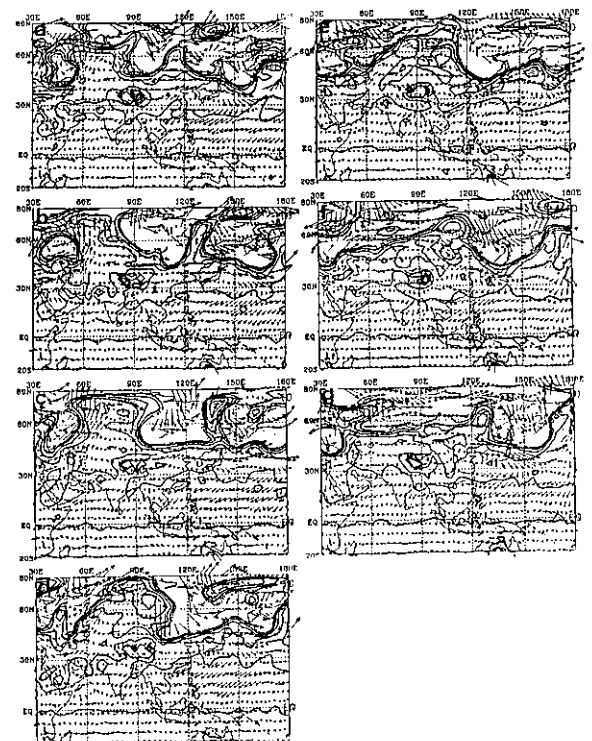 30E 60E 90E 120E 150E 180E
80N
a
60N
30N
EQ
20S
30E 60E 90E 120E 150E 180E
80N
60N
30N
EQ
20S
30E 60E 90E 120E 150E 180E
80N
b
60N
30N
EQ
20S
30E 60E 90E 120E 150E 180E
80N
f
60N
30N
EQ
20S
30E 60E 90E 120E 150E 180E
80N
c
60N
30N
EQ
20S
30E 60E 90E 120E 150E
80N
g
60N
30N
EQ
20S
30E 60E 90E 120E 150E 180E
80N
d
60N
30N
EQ
20S